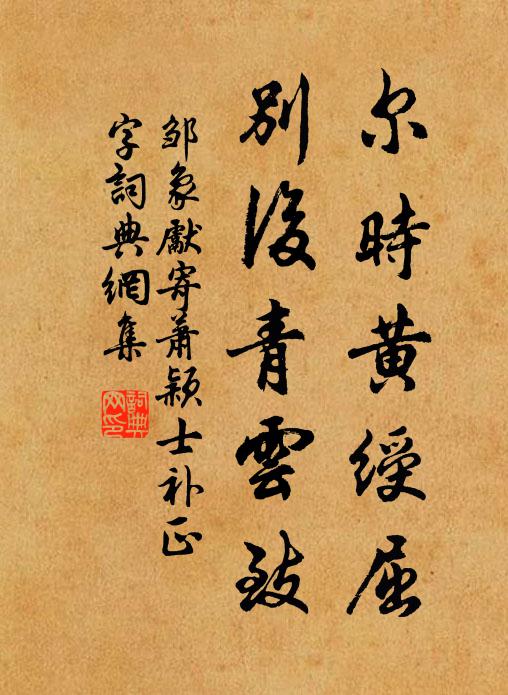 尔時黄綬屈
別後青雲致
邹象獻寄萧颖士补正
字詞典網集
詞典網印